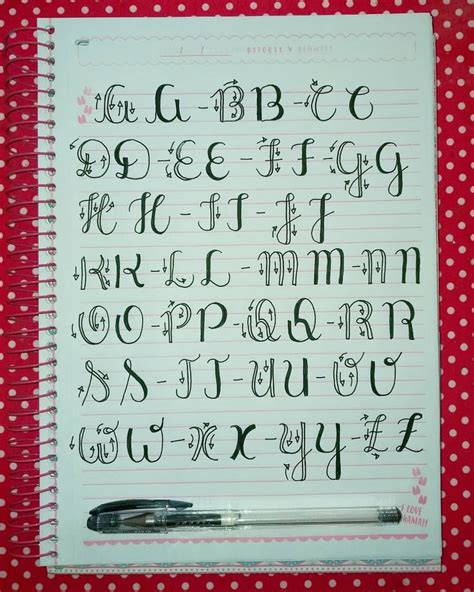 A A - B B - C C
D D - E E - F F - G G
H H - I I - J J
K K - L L - M M - N N
O O - P P - Q Q - R R
S S - T T - U U - V V
W W - X X - Y Y - Z Z
I LOVE